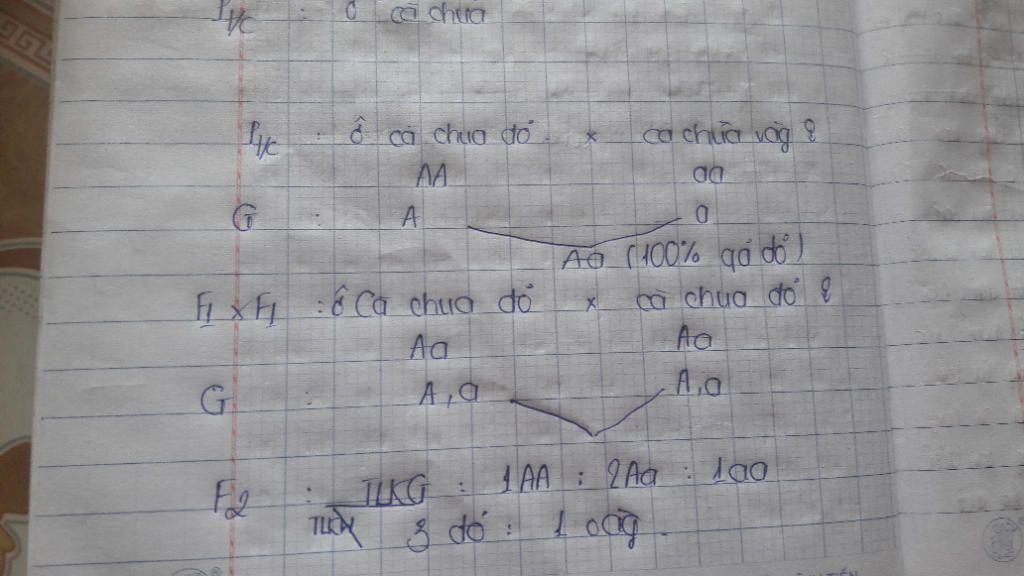 P t/c : ♂ cà chua
P t/c : ♂ cà chua đỏ x cà chua vàg ♀
AA aa
G : A a
Aa (100% quả đỏ)
F1 x F1 : ♂ Cà chua đỏ x cà chua đỏ ♀
Aa Aa
G : A, a A, a
F2 : TLKG : 1AA : 2Aa : 1aa
3 đỏ : 1 vàg.